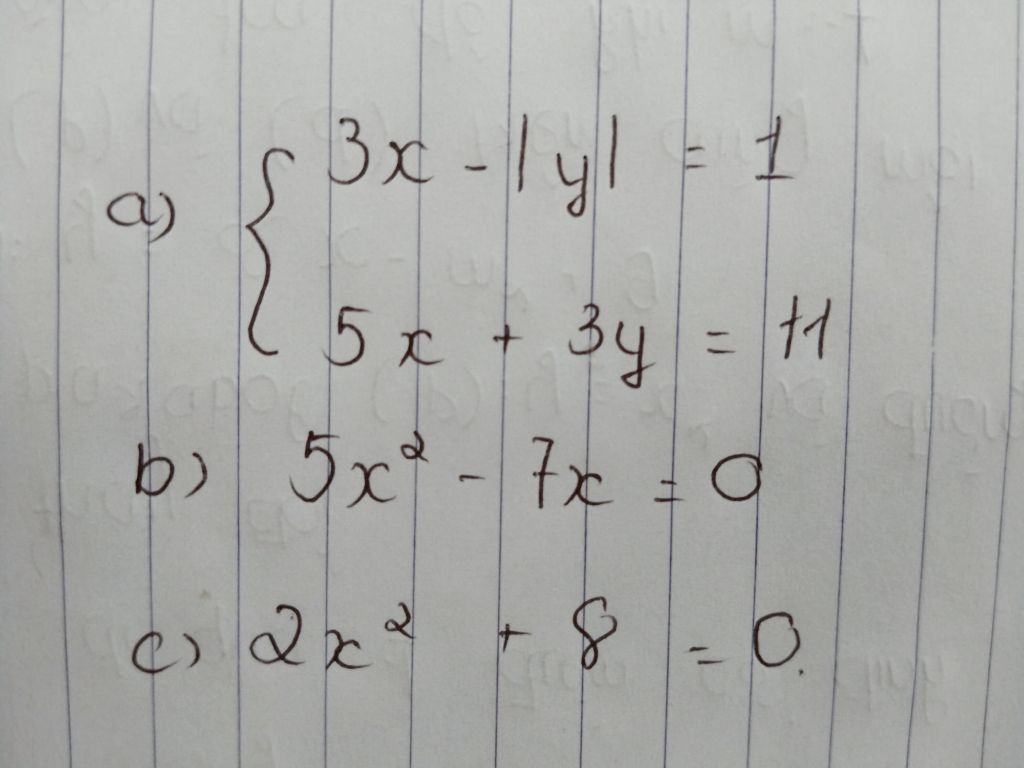 a) { 3x - |y| = 1
5x + 3y = 11
b) 5x² - 7x = 0
c) 2x² + 8 = 0.